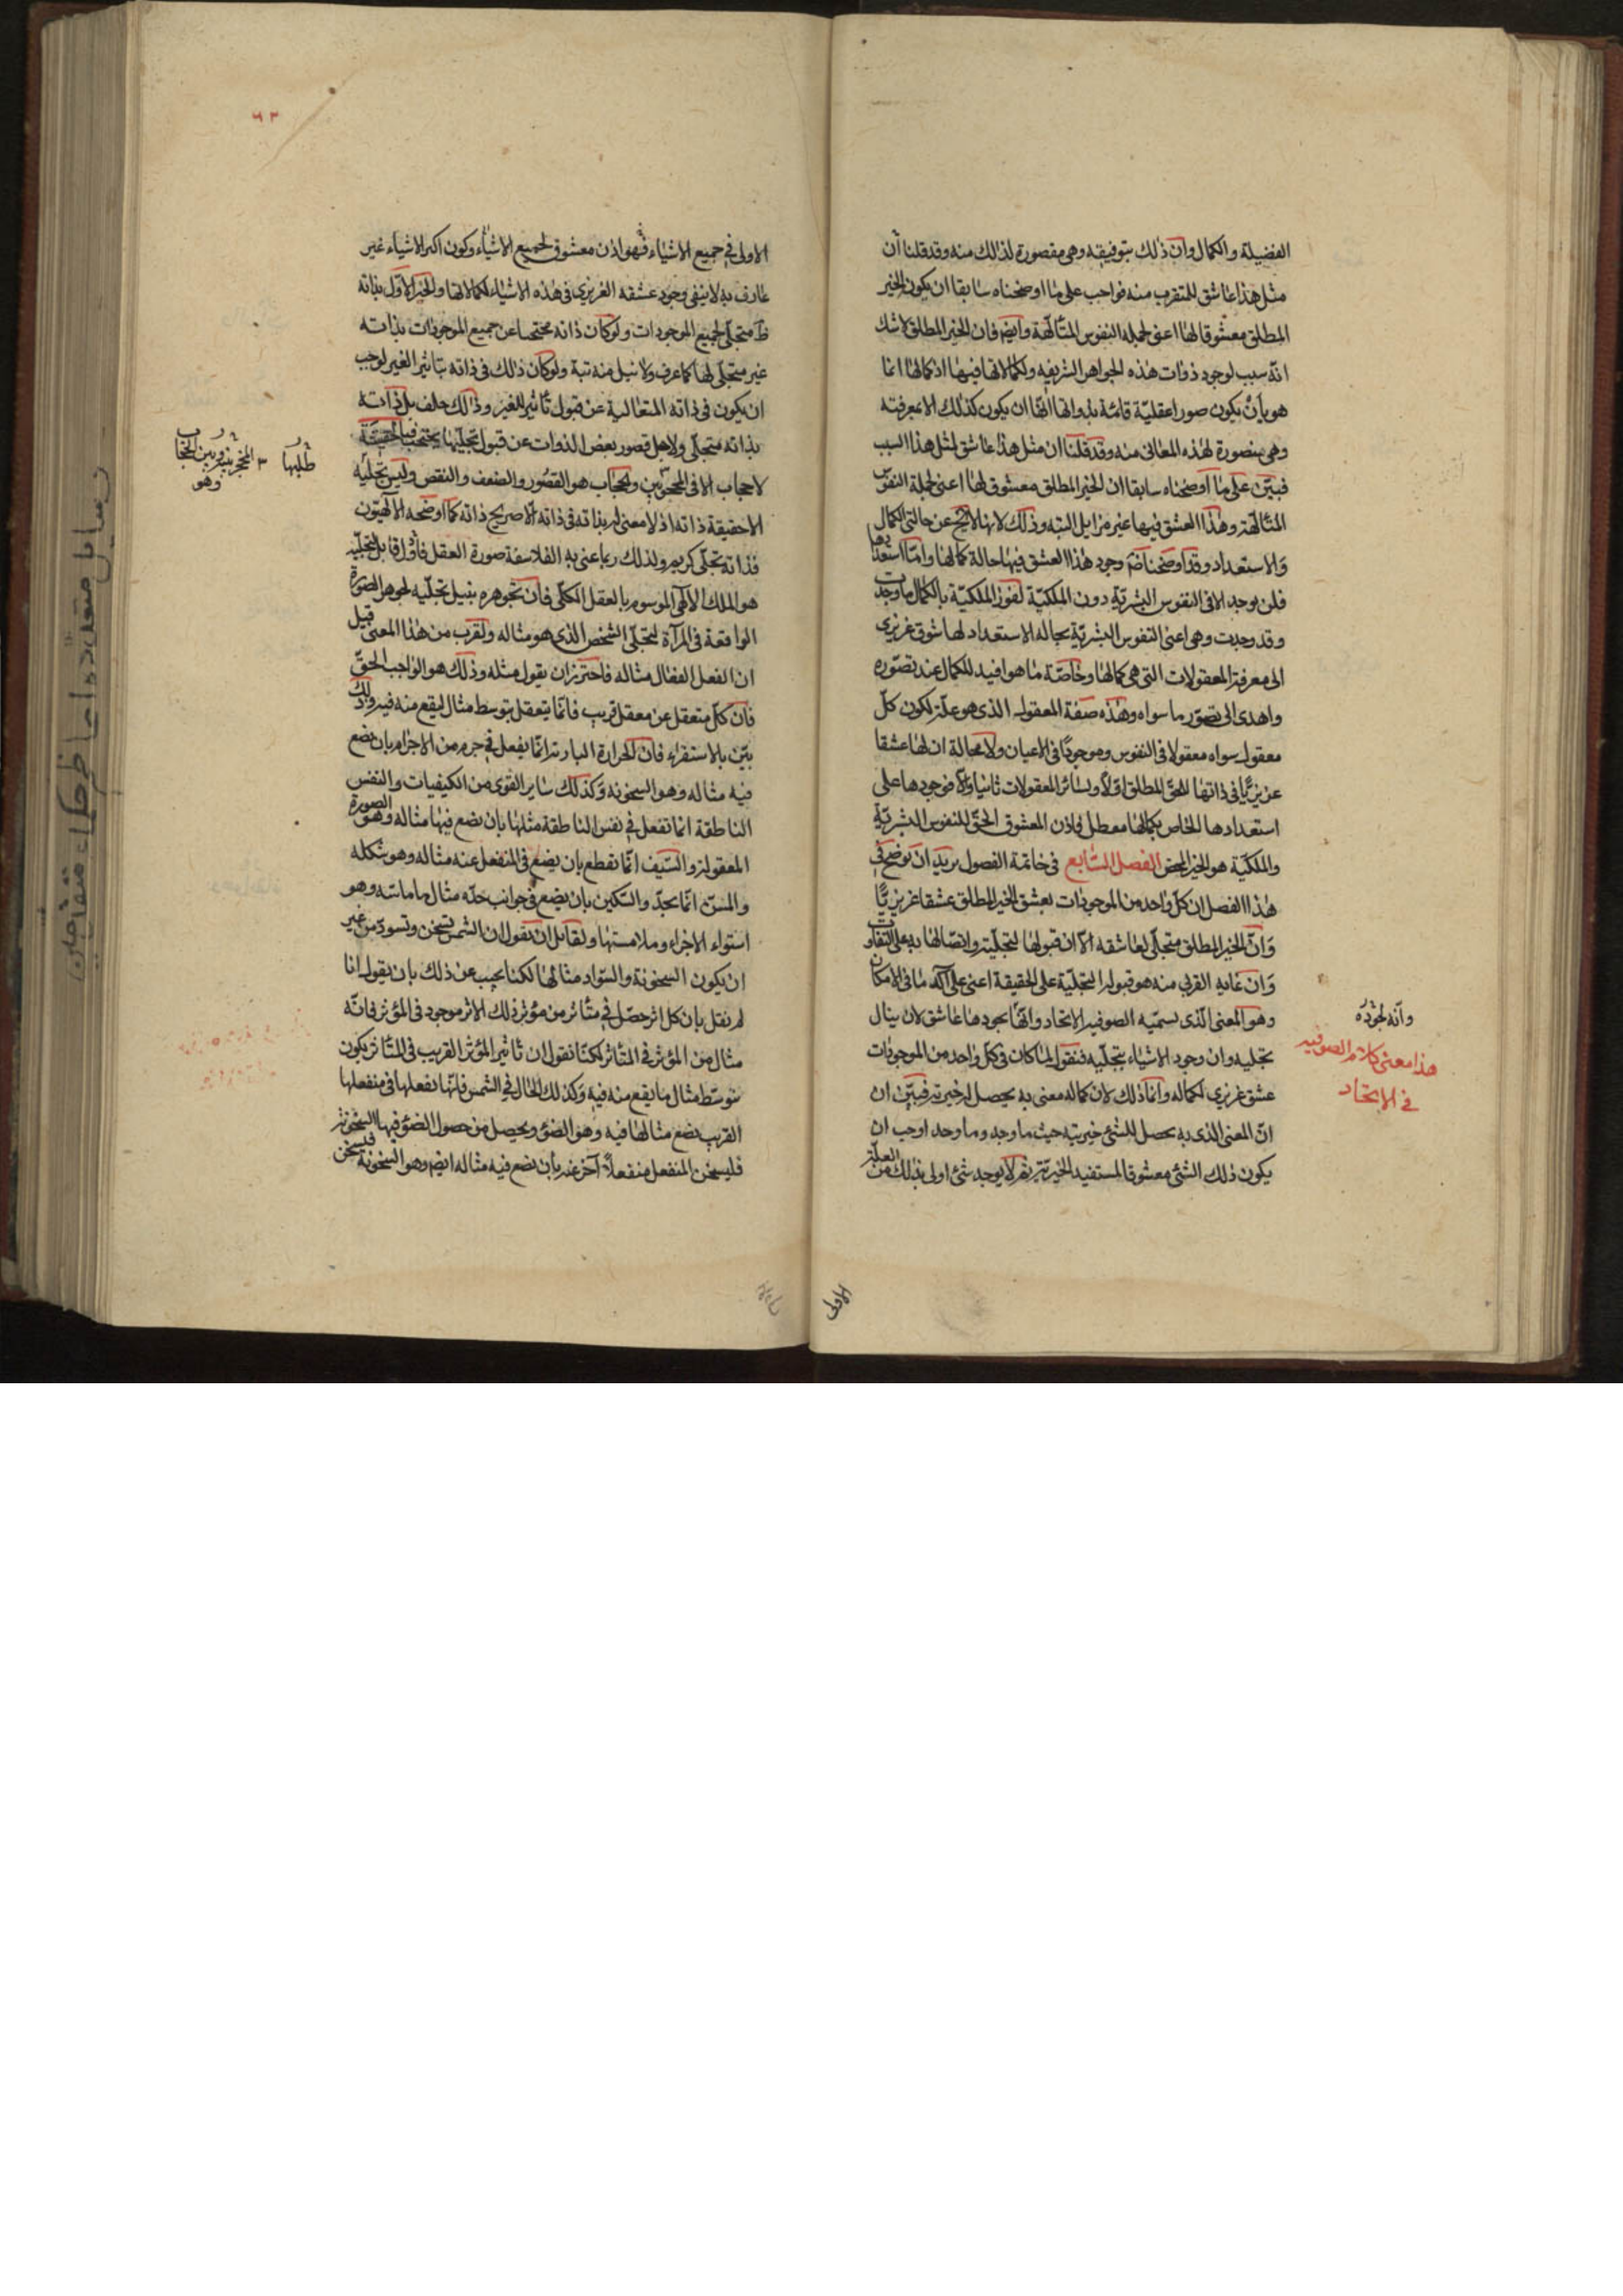 الفضيلة والكمال وان ذلك بتوفيقه وهى مقصورة لذلك منه وقد قلنا ان
مثل هذا عاشق للمتقرب منه فواجب على ما اوضحناه سابقا ان يكون الخير
المطلق معشوقا لها اعنى لجملة النفوس المتألهة وايضم فان الخير المطلق لا شك
انه سبب لوجود ذوات هذه الجواهر الشريفه ولكمالاتها فيها اذ كمالها انما
هو بان يكون صورا عقلية قائمة بذواتها انها ان يكون كذلك الا بمعرفته
وهى متصورة لهذه المعانى منه وقد قلنا ان مثل هذا عاشق لمثل هذا السبب
فبين على ما اوضحناه سابقا ان الخير المطلق معشوق لها اعنى لجملة النفوس
المتألهة وهذا العشق فيها غير مزايل البته وذلك لانها لا تخ عن حالتى الكمال
والاستعداد وقد اوضحنا ضم وجود هذا العشق فيها حالة كمالها واما استعدادها
فلن يوجد الا فى النفوس البشرية دون الملكية لفوز الملكية بالكمال ما وجدت
وقد وجدت وهى اعنى النفوس البشرية بحاله الاستعداد لها شوق غريزى
الى معرفة المعقولات التى هى كمالها وخاصة ما هو افيد للكمال عند تصوره
واهدى الى تصور ما سواه وهذه صفة المعقول الذى هو علة لكون كل
معقول سواه معقولا فى النفوس وموجودا فى الاعيان ولا محالة ان لها عشقا
عزيزيا فى ذاتها للحق المطلق اولا ولسائر المعقولات ثانيا والا فوجودها على
استعدادها الخاص بكمالها معطل فاذن المعشوق الحق للنفوس البشرية
والملكية هو الخير المحض الفصل السابع فى خاتمة الفصول نريد ان نوضح فى
هذا الفصل ان كل واحد من الموجودات يعشق الخير المطلق عشقا غريزيا
وان الخير المطلق متجلى لعاشقه الا ان قبولها لتجليه واتصالها به على التفاوت
وان غاية القربى منه هو قبول لتجليه على الحقيقة اعنى على اكد ما فى الامكان
وهو المعنى الذى يسميه الصوفيه الاتحاد وانها بجودها عاشق لان ينال
تجليه وان وجود الاشياء بتجليه فنقول لما كان فى كل واحد من الموجودات
عشق غريزى لكماله وانما ذلك لان كماله معنى به يحصل له خيريته فبين ان
ان المعنى الذى به يحصل للشئ خيريته حيث ما وجد وما وجد اوجب ان
يكون ذلك الشئ معشوقا لمستفيد الخيرية ثم لا يوجد شئ اولى بذلك من العلة
وانه لجوده
هذا معنى كلام الصوفيه
فى الاتحاد
الاولى
٦٣
الاولى فى جميع الاشياء فهو اذن معشوق لجميع الاشياء وكون اكثر الاشياء غير
عارف به لا ينفى وجود عشقه الغريزى فى هذه الاشياء لكمالاتها والخير الاول بذاته
ظ متجلى لجميع الموجودات ولو كان ذاته محتجبا عن جميع الموجودات بذاته
غير متجلى لها لما عرف ولا نيل منه بتة ولو كان ذلك فى ذاته بتاثير الغير لوجب
ان يكون فى ذاته المتعالية عن قبول تاثير الغير وذلك خلف بل ذاته
بذاته متجلى ولاجل قصور بعض الذوات عن قبول تجليها يحتجب فبالحقيقة
لا حجاب الا فى المحجوبين والحجاب هو القصور والضعف والنقص وليس تجليه
الا حقيقة ذاته اذ لا معنى له بذاته فى ذاته الا صريح ذاته كما اوضحه الالهيون
فذاته تجلى كريم ولذلك ربما عنى به الفلاسفة صورة العقل فاول قابل لتجليه
هو الملك الالهى الموسوم بالعقل الكلى فان تجوهره بنيل تجليه لجوهر الصورة
الواقعة فى المرآة لتجلى الشخص الذى هو مثاله ولقرب من هذا المعنى قيل
ان الفعل الفعال مثاله فاحترز ان يقول مثله وذلك هو الواجب الحق
فان كل متعقل عن معقل قريب فانما يتعقل بتوسط مثال ليقع منه فيه وذلك
بين بالاستقراء فان الحرارة النارية انما يفعل فى جرم من الاجرام بان تضع
فيه مثاله وهو السخونه وكذلك سائر القوى من الكيفيات والنفس
الناطقة انما تفعل فى نفس الناطقة مثلها بان يضع فيها مثاله وهو الصورة
المعقولة والسيف انما تقطع بان يضع فى المنفعل عنه مثاله وهو شكله
والمسن انما يحد والسكين بان يضع فى جوانب حده مثال ما ماسته وهو
استواء الاجزاء وملامستها ولقائل ان يقول ان الشمس تسخن وتسود من غير
ان يكون السخونة والسواد مثالها لكنا نجيب عن ذلك بان يقول انا
لم نقل بان كل اثر حصل فى متأثر من مؤثر ذلك الاثر موجود فى المؤثر فانه
مثال من المؤثر فى المتأثر لكنا نقول ان تاثير المؤثر القريب فى المتأثر يكون
بتوسط مثال ما يقع منه فيه وكذلك الحال فى الشمس فانها تفعلها فى منفعلها
القريب بضع مثالها فيه وهو الضوء ويحصل من حصول الضوء فيها السخونة
فليسخن المنفعل منفعلا آخر عنه بان يضع فيه مثاله ايضم وهو السخونة فيسخن
طلبها
وهو
رسائل متعددة